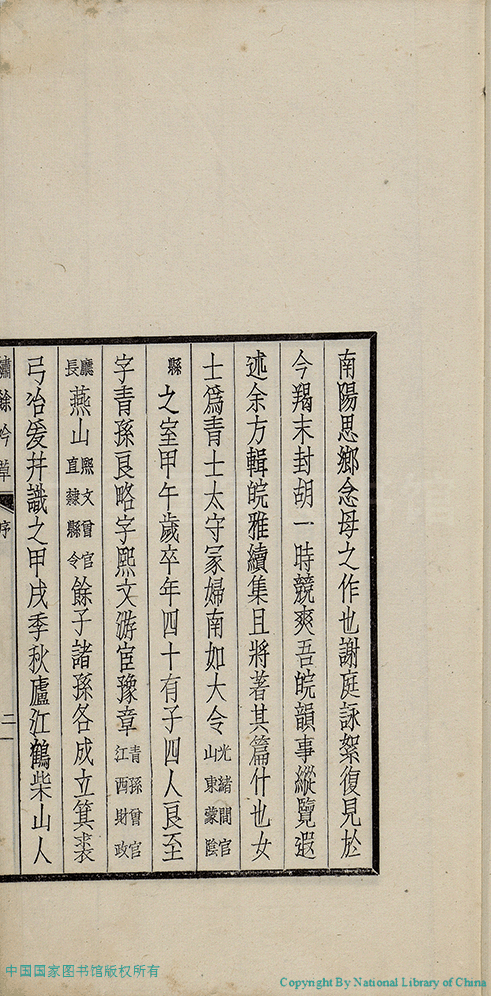 南陽思鄉念母之作也謝庭詠絮復見於
今羯末封胡一時競爽吾皖韻事縱覽遐
述余方輯皖雅續集且將著其篇什也女
士為青士太守冢婦南如大令光緒間官山東蒙陰
縣之室甲午歲卒年四十有子四人良至
字青孫良略字熙文游宦豫章青孫曾官江西財政
廳長燕山熙文曾官直隸縣令餘子諸孫各成立箕裘
弓冶爰幷識之甲戌季秋廬江鶴柴山人
繡餘吟草
序
二
中国国家图书馆版权所有
Copyright By National Library of China